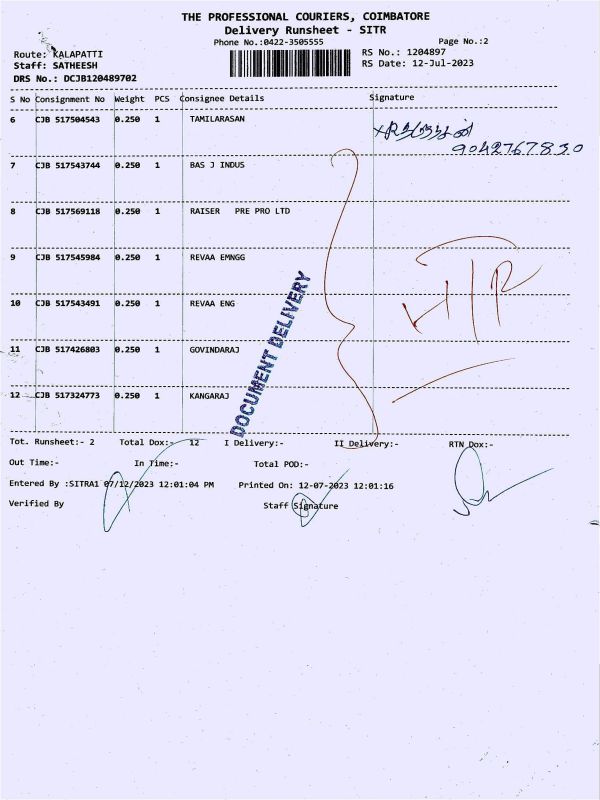 THE PROFESSIONAL COURIERS, COIMBATORE
Delivery Runsheet - SITR
Phone No.:0422-3505555 Page No.:2
Route: KALAPATTI RS No.: 1204897
Staff: SATHEESH RS Date: 12-Jul-2023
DRS No.: DCJB120489702
S No Consignment No Weight PCS Consignee Details Signature
6 CJB 517504543 0.250 1 TAMILARASAN
9042767830
7 CJB 517543744 0.250 1 BAS J INDUS
8 CJB 517569118 0.250 1 RAISER PRE PRO LTD
9 CJB 517545984 0.250 1 REVAA EMNGG
10 CJB 517543491 0.250 1 REVAA ENG
HTR
11 CJB 517426803 0.250 1 GOVINDARAJ
12 CJB 517324773 0.250 1 KANGARAJ
DOCUMENT DELIVERY
Tot. Runsheet:- 2 Total Dox:- 12 I Delivery:- II Delivery:- RTN Dox:-
Out Time:- In Time:- Total POD:-
Entered By :SITRA1 07/12/2023 12:01:04 PM Printed On: 12-07-2023 12:01:16
Verified By Staff Signature